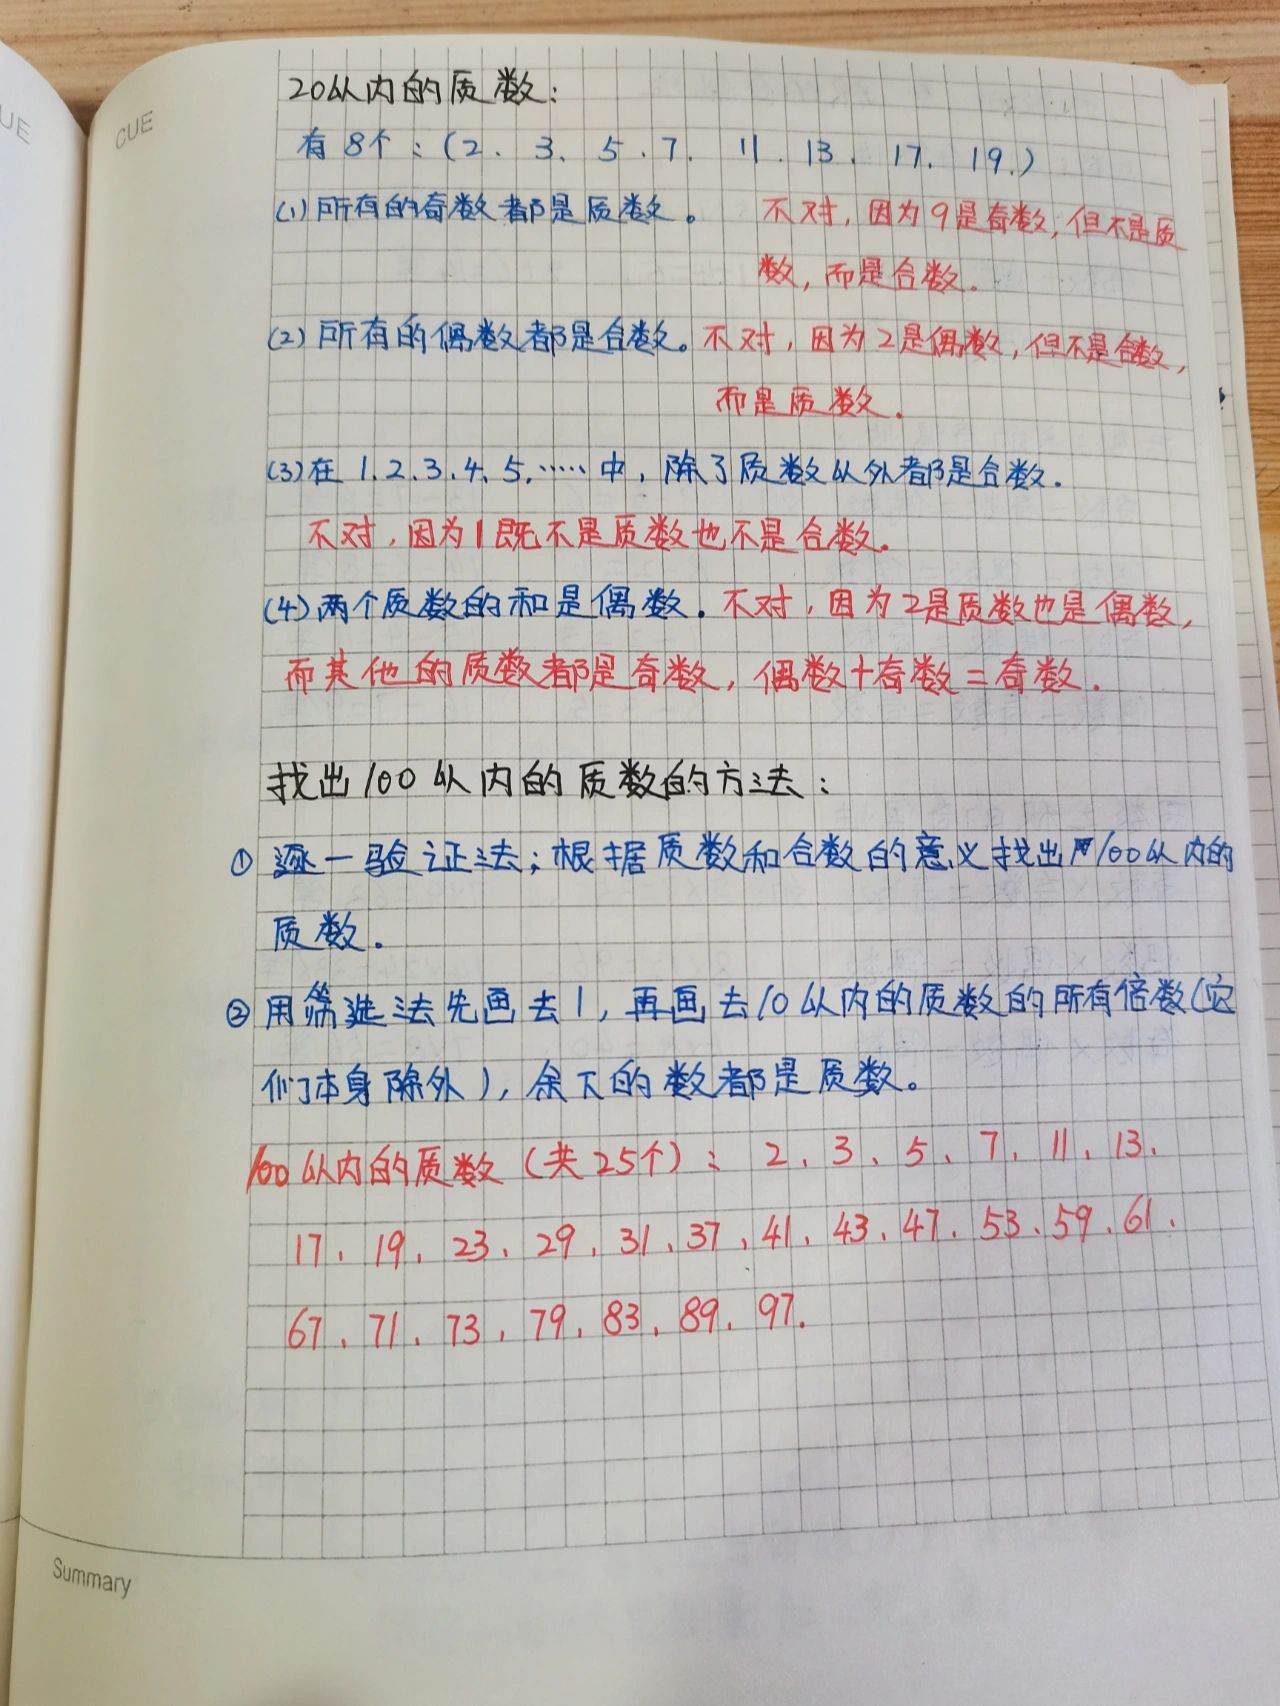 UE
CUE
20以内的质数：
有8个：(2、3、5、7、11、13、17、19.)
(1)所有的奇数都是质数。 不对，因为9是奇数，但不是质
数，而是合数.
(2)所有的偶数都是合数。不对，因为2是偶数，但不是合数，
而是质数.
(3)在1.2.3.4.5.……中，除了质数以外都是合数.
不对，因为1既不是质数也不是合数.
(4)两个质数的和是偶数.不对，因为2是质数也是偶数，
而其他的质数都是奇数，偶数+奇数=奇数.
找出100以内的质数的方法：
① 逐一验证法；根据质数和合数的意义找出100以内的
质数.
② 用筛选法先画去1，再画去10以内的质数的所有倍数(它
们本身除外)，余下的数都是质数。
100以内的质数(共25个)：2、3、5、7、11、13、
17、19、23、29、31、37、41、43、47、53、59、61、
67、71、73、79、83、89、97.
Summary